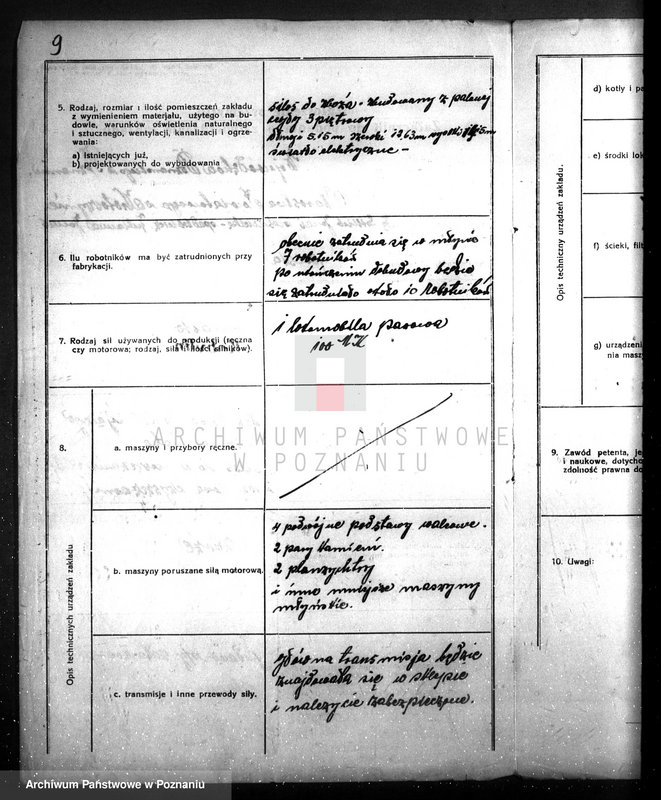 9
5. Rodzaj, rozmiar i ilość pomieszczeń zakładu
z wymienieniem materjału, użytego na bu-
dowie, warunków oświetlenia naturalnego
i sztucznego, wentylacji, kanalizacji i ogrze-
wania:
a) istniejących już,
b) projektowanych do wybudowania
silos do zboża - zbudowany z palonej
cegły 3 piętrowy
długi 5.15 m szeroki 12.63 m wysoki
światło elektryczne -
6. Ilu robotników ma być zatrudnionych przy
fabrykacji.
obecnie zatrudnia się w młynie
7 robotników
po ukończeniu dobudowy będzie
się zatrudniało około 10 robotników
7. Rodzaj sił używanych do produkcji (ręczna
czy motorowa; rodzaj, siła i ilość silników).
1 lokomobila parowa
100 KM
8.
Opis technicznych urządzeń zakładu
a. maszyny i przybory ręczne.
b. maszyny poruszane siłą motorową.
4 podwójne podstawy walcowe.
2 pary kamieni.
2 planzychtry
i inne mniejsze maszyny
młyńskie.
c. transmisje i inne przewody siły.
główna transmisja będzie
znajdowała się w sklepie
i należycie zabezpieczone.
Opis techniczny urządzeń zakładu.
d) kotły i
e) środki
f) ścieki,
g) urządzeni
nia
9. Zawód petenta,
i naukowe,
zdolność prawna do
10. Uwagi:
ARCHIWUM PAŃSTWOWE
W POZNANIU
Archiwum Państwowe w Poznaniu